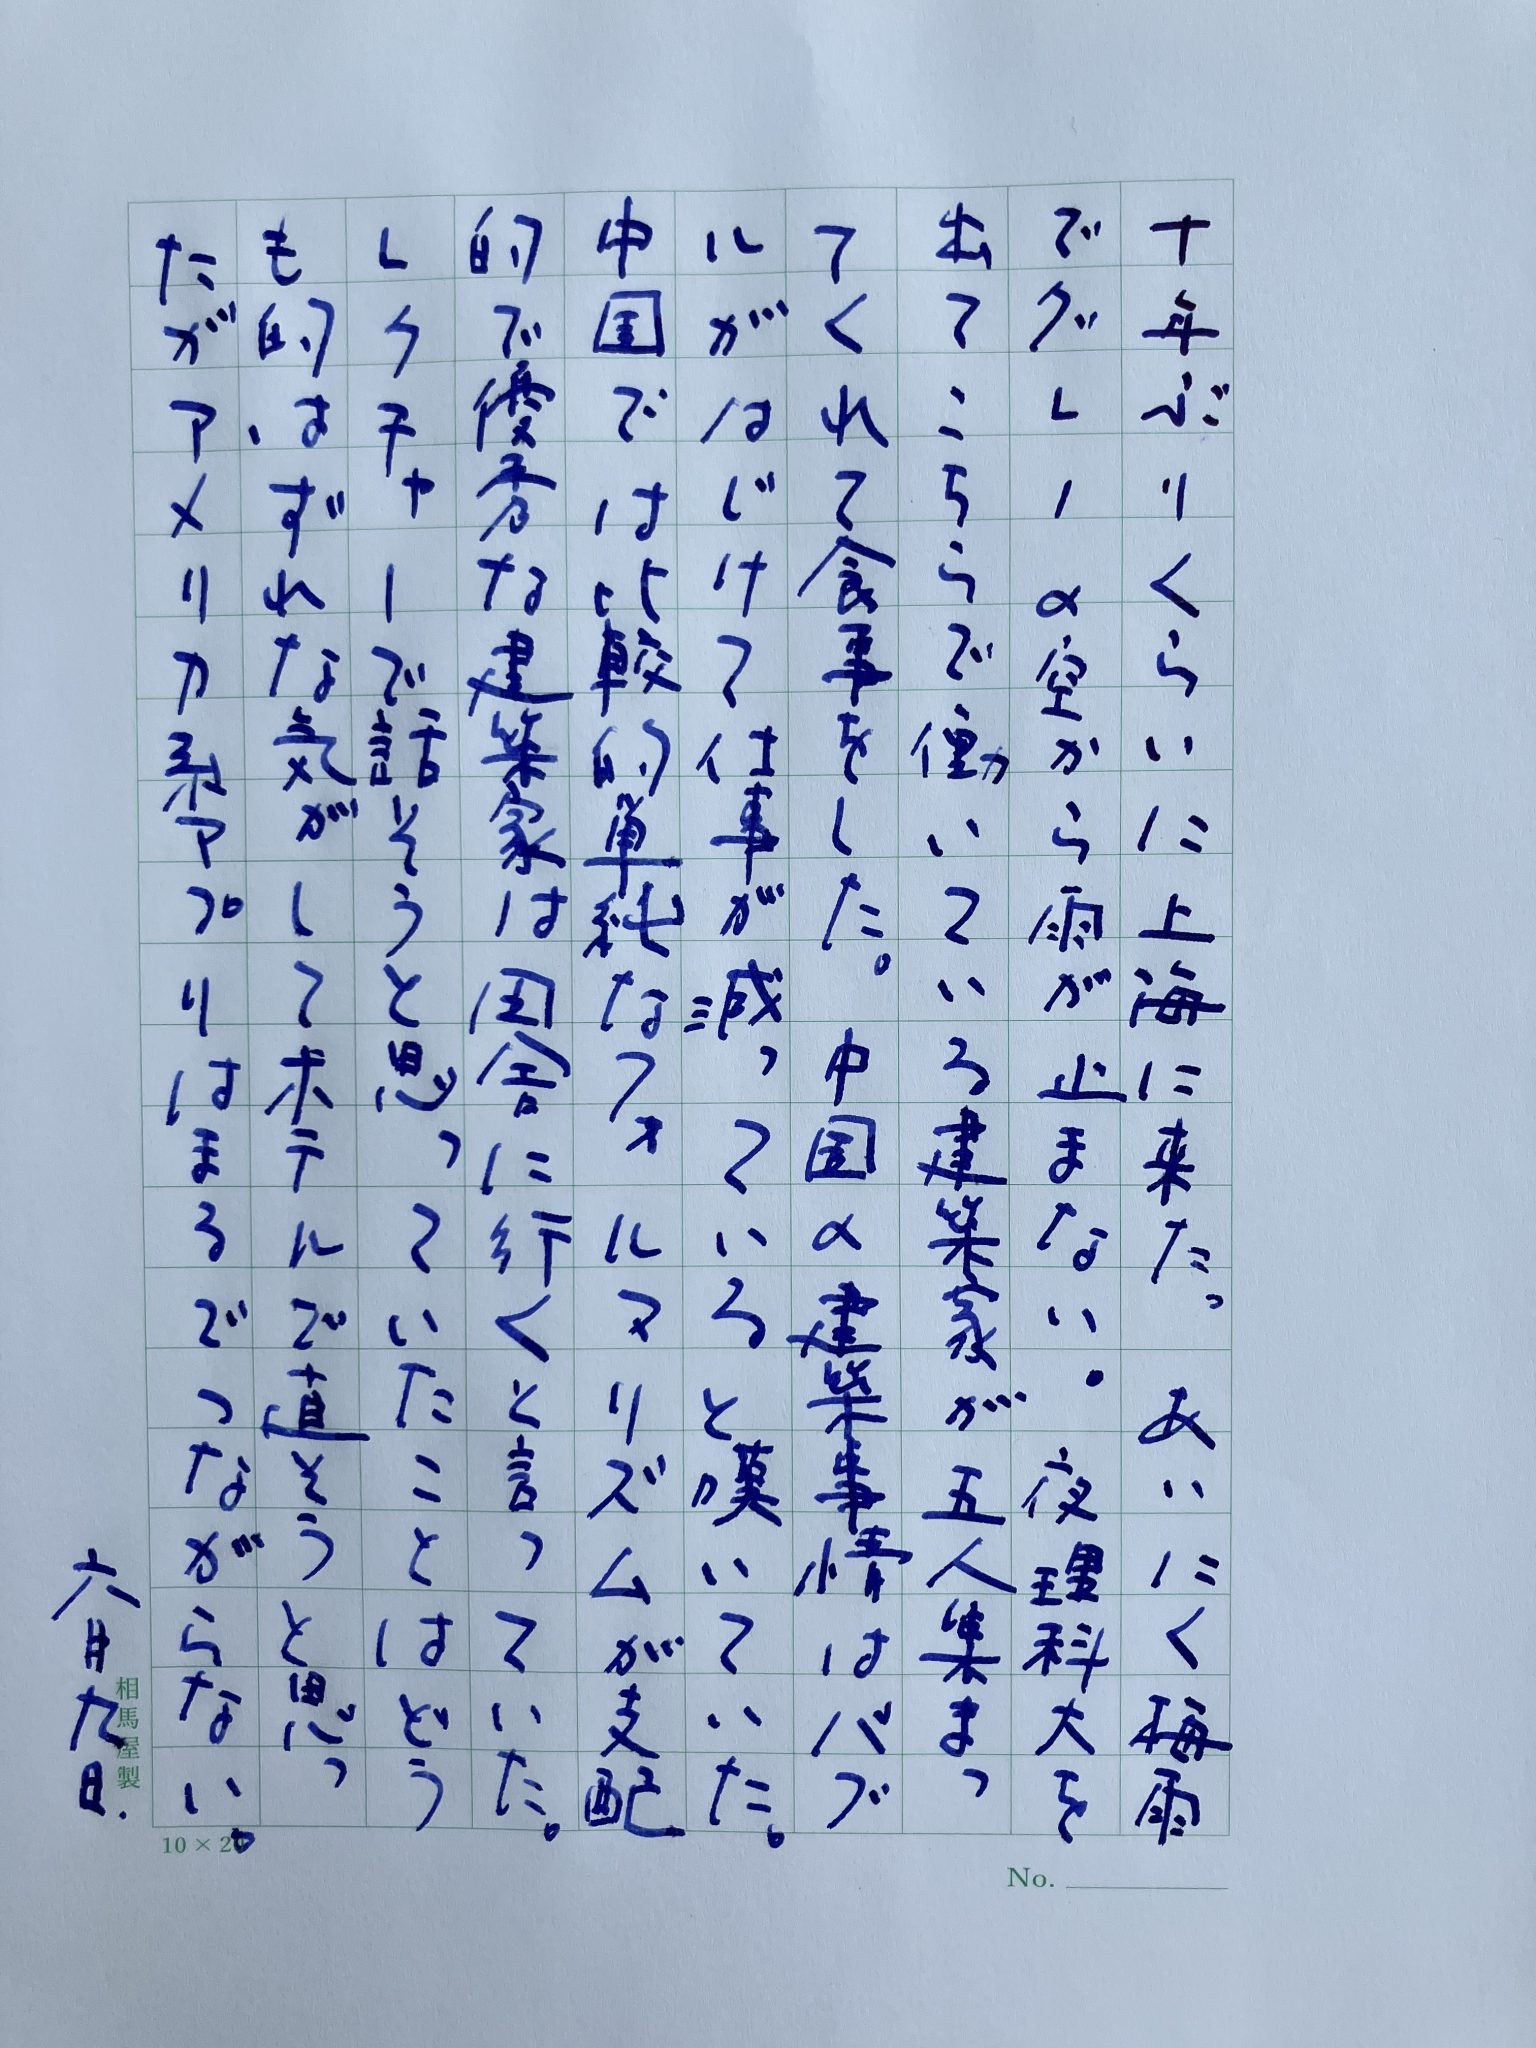 十年ぶりくらいに上海に来た。あいにく梅雨
でグレーの空から雨が止まない。夜理科大を
出てこちらで働いている建築家が五人集まっ
てくれて食事をした。中国の建築事情はバブ
ルがはじけて仕事が減っていると嘆いていた。
中国では比較的単純なフォルマリズムが支配
的で優秀な建築家は田舎に行くと言っていた。
レクチャーで話そうと思っていたことはどう
も的はずれな気がしてホテルで直そうと思っ
たがアメリカ系アプリはまるでつながらない。
六月九日.
相馬屋製
10×20
No.